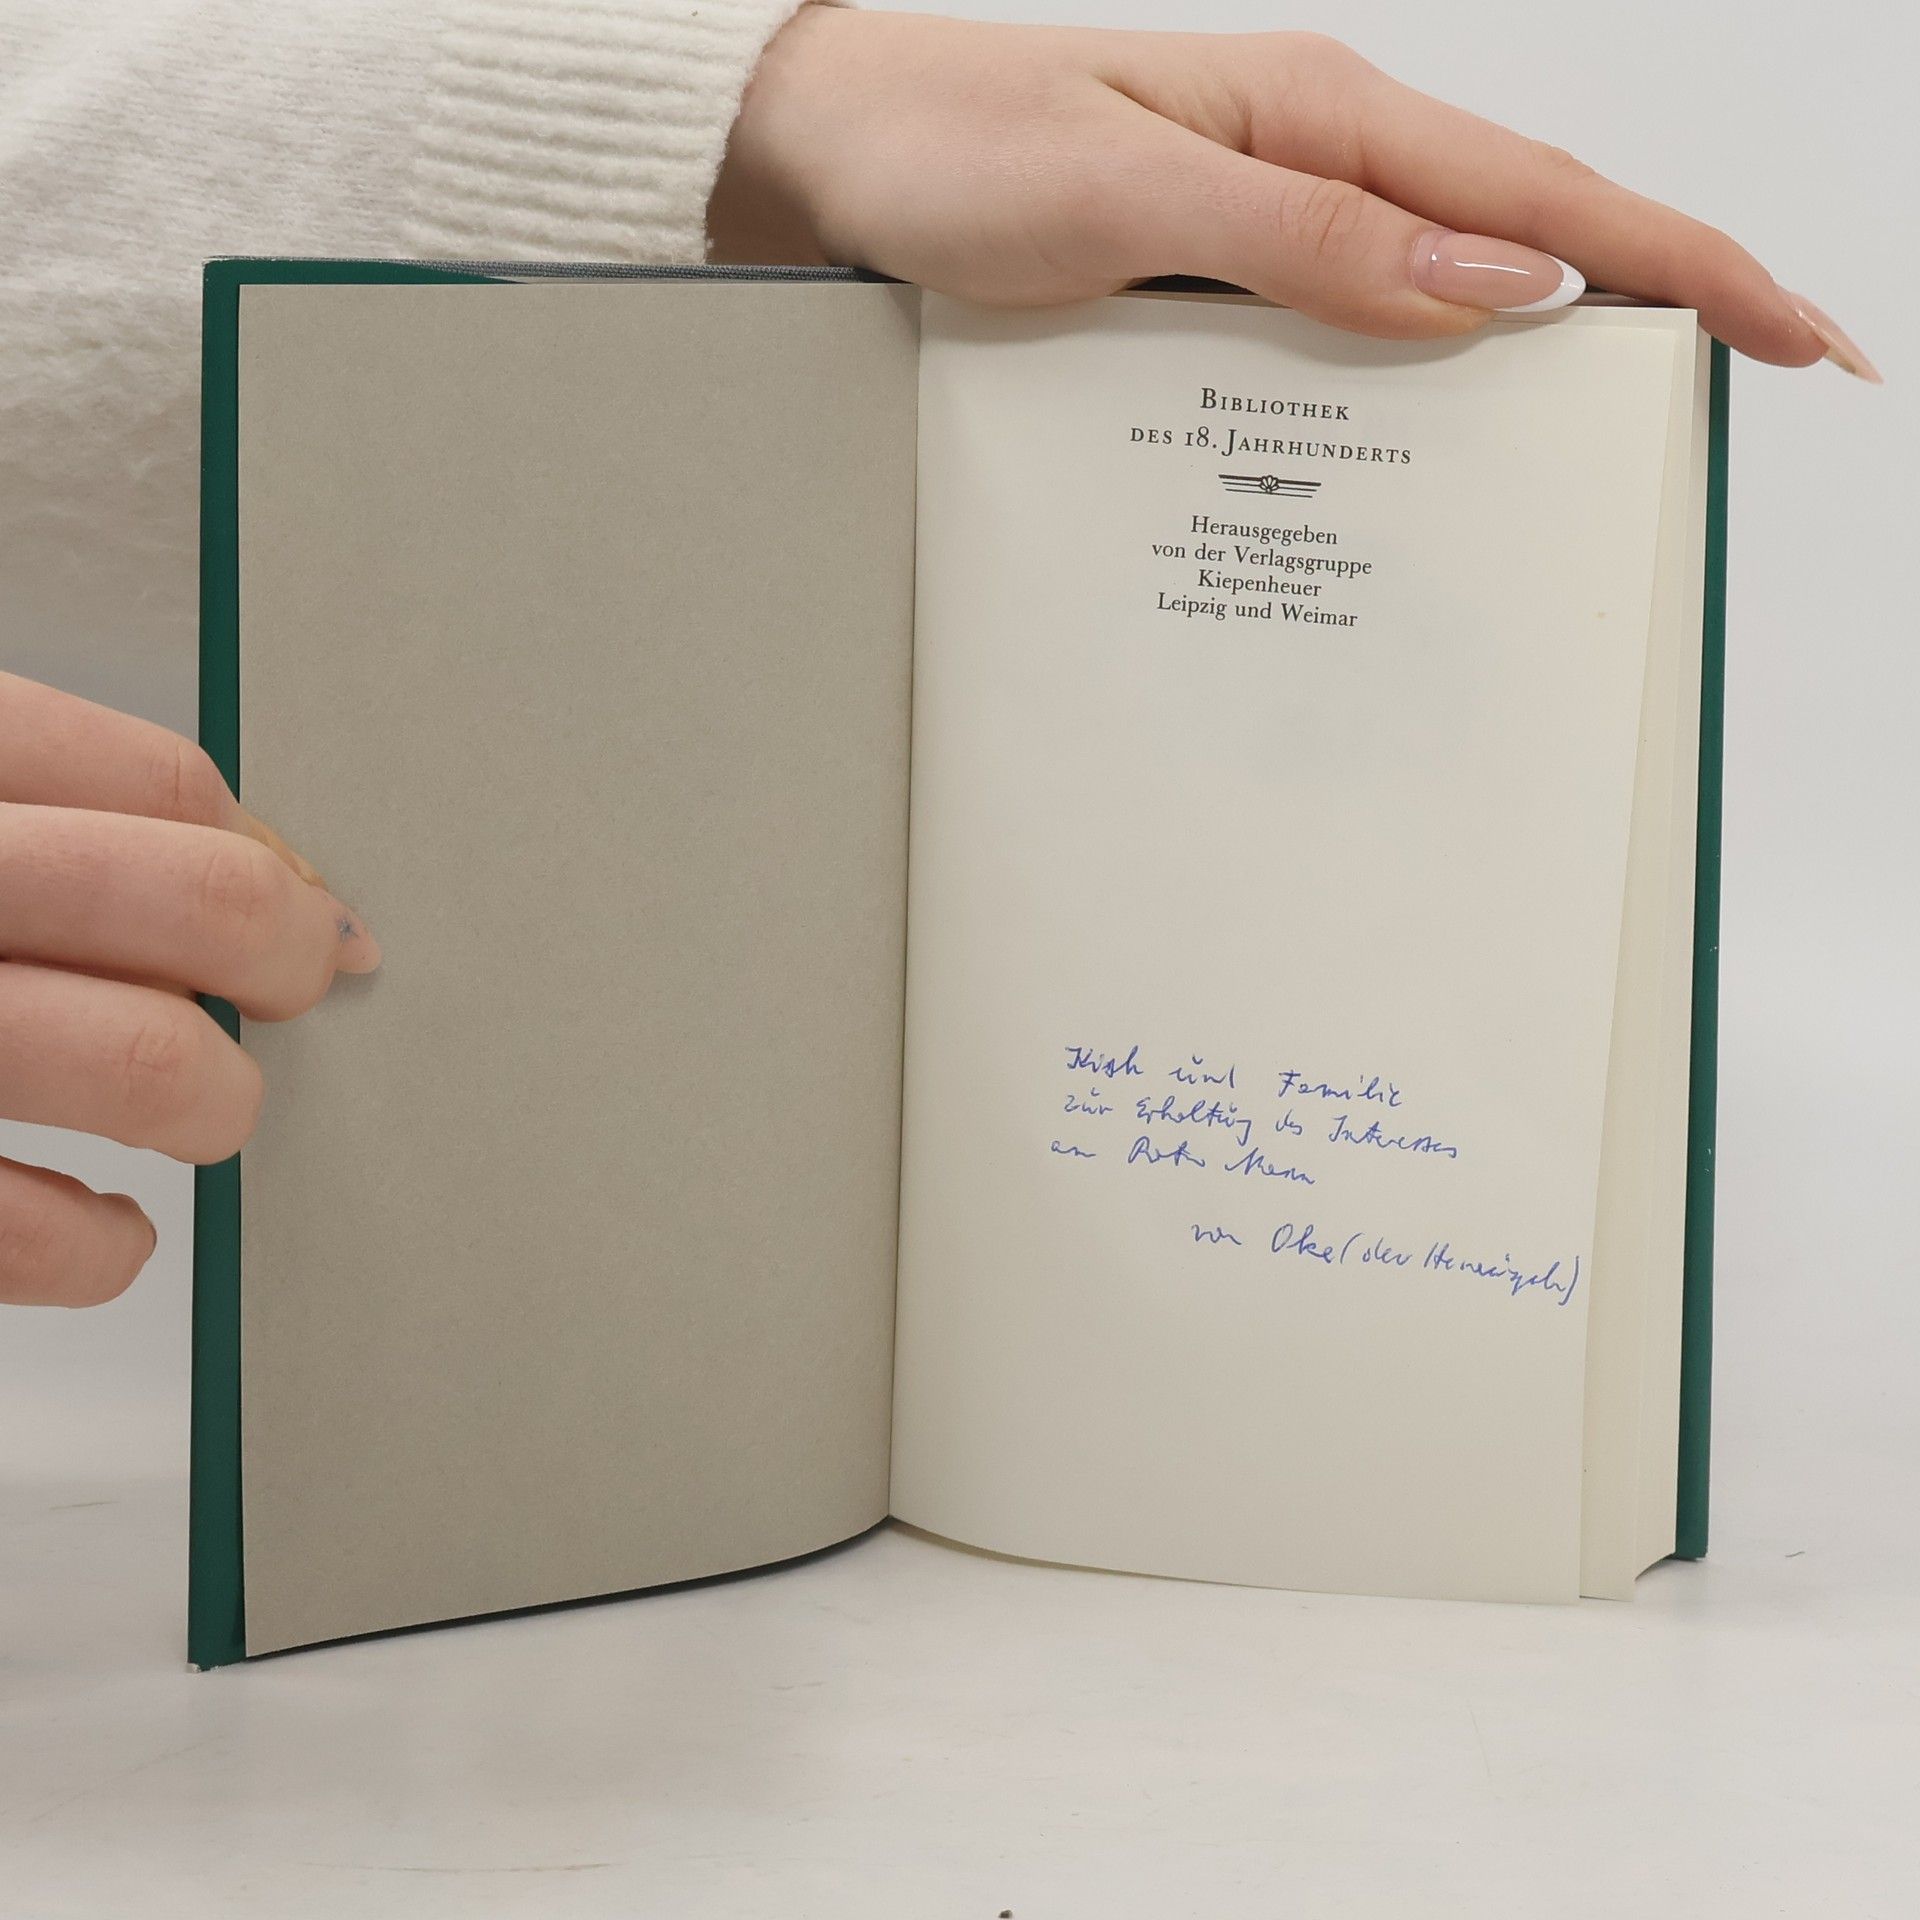 BIBLIOTHEK
DES 18. JAHRHUNDERTS
Herausgegeben
von der Verlagsgruppe
Kiepenheuer
Leipzig und Weimar
und Familie
zur Erhaltung des Interesses
am
von Oke (der